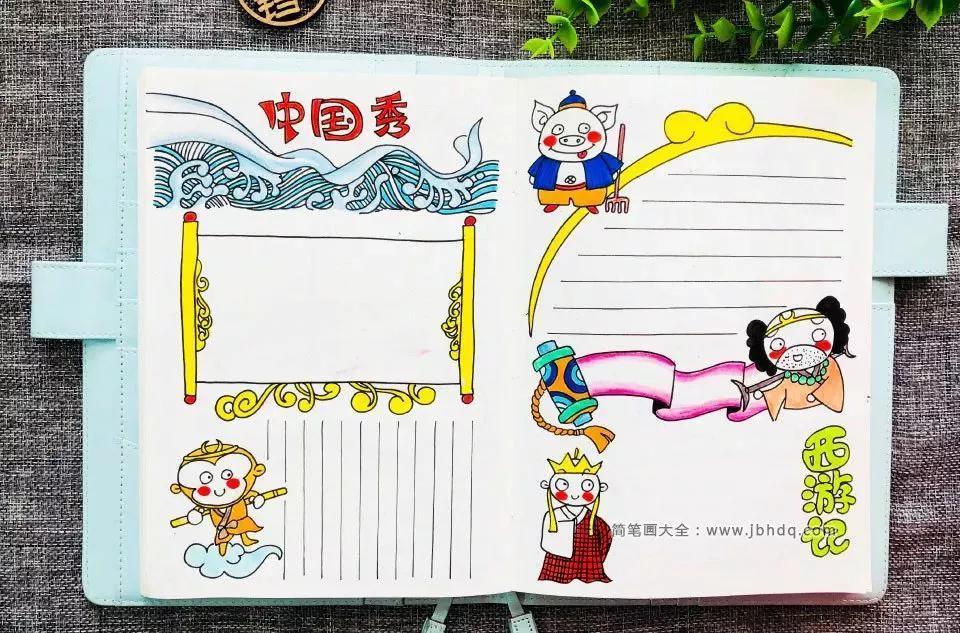 中国秀
西游记
简笔画大全：www.jbhdq.com